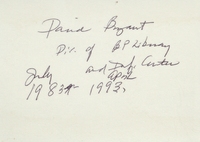 David Bryant
Dir. of BP Library
and Info. Center
July April
1983 - 1992.